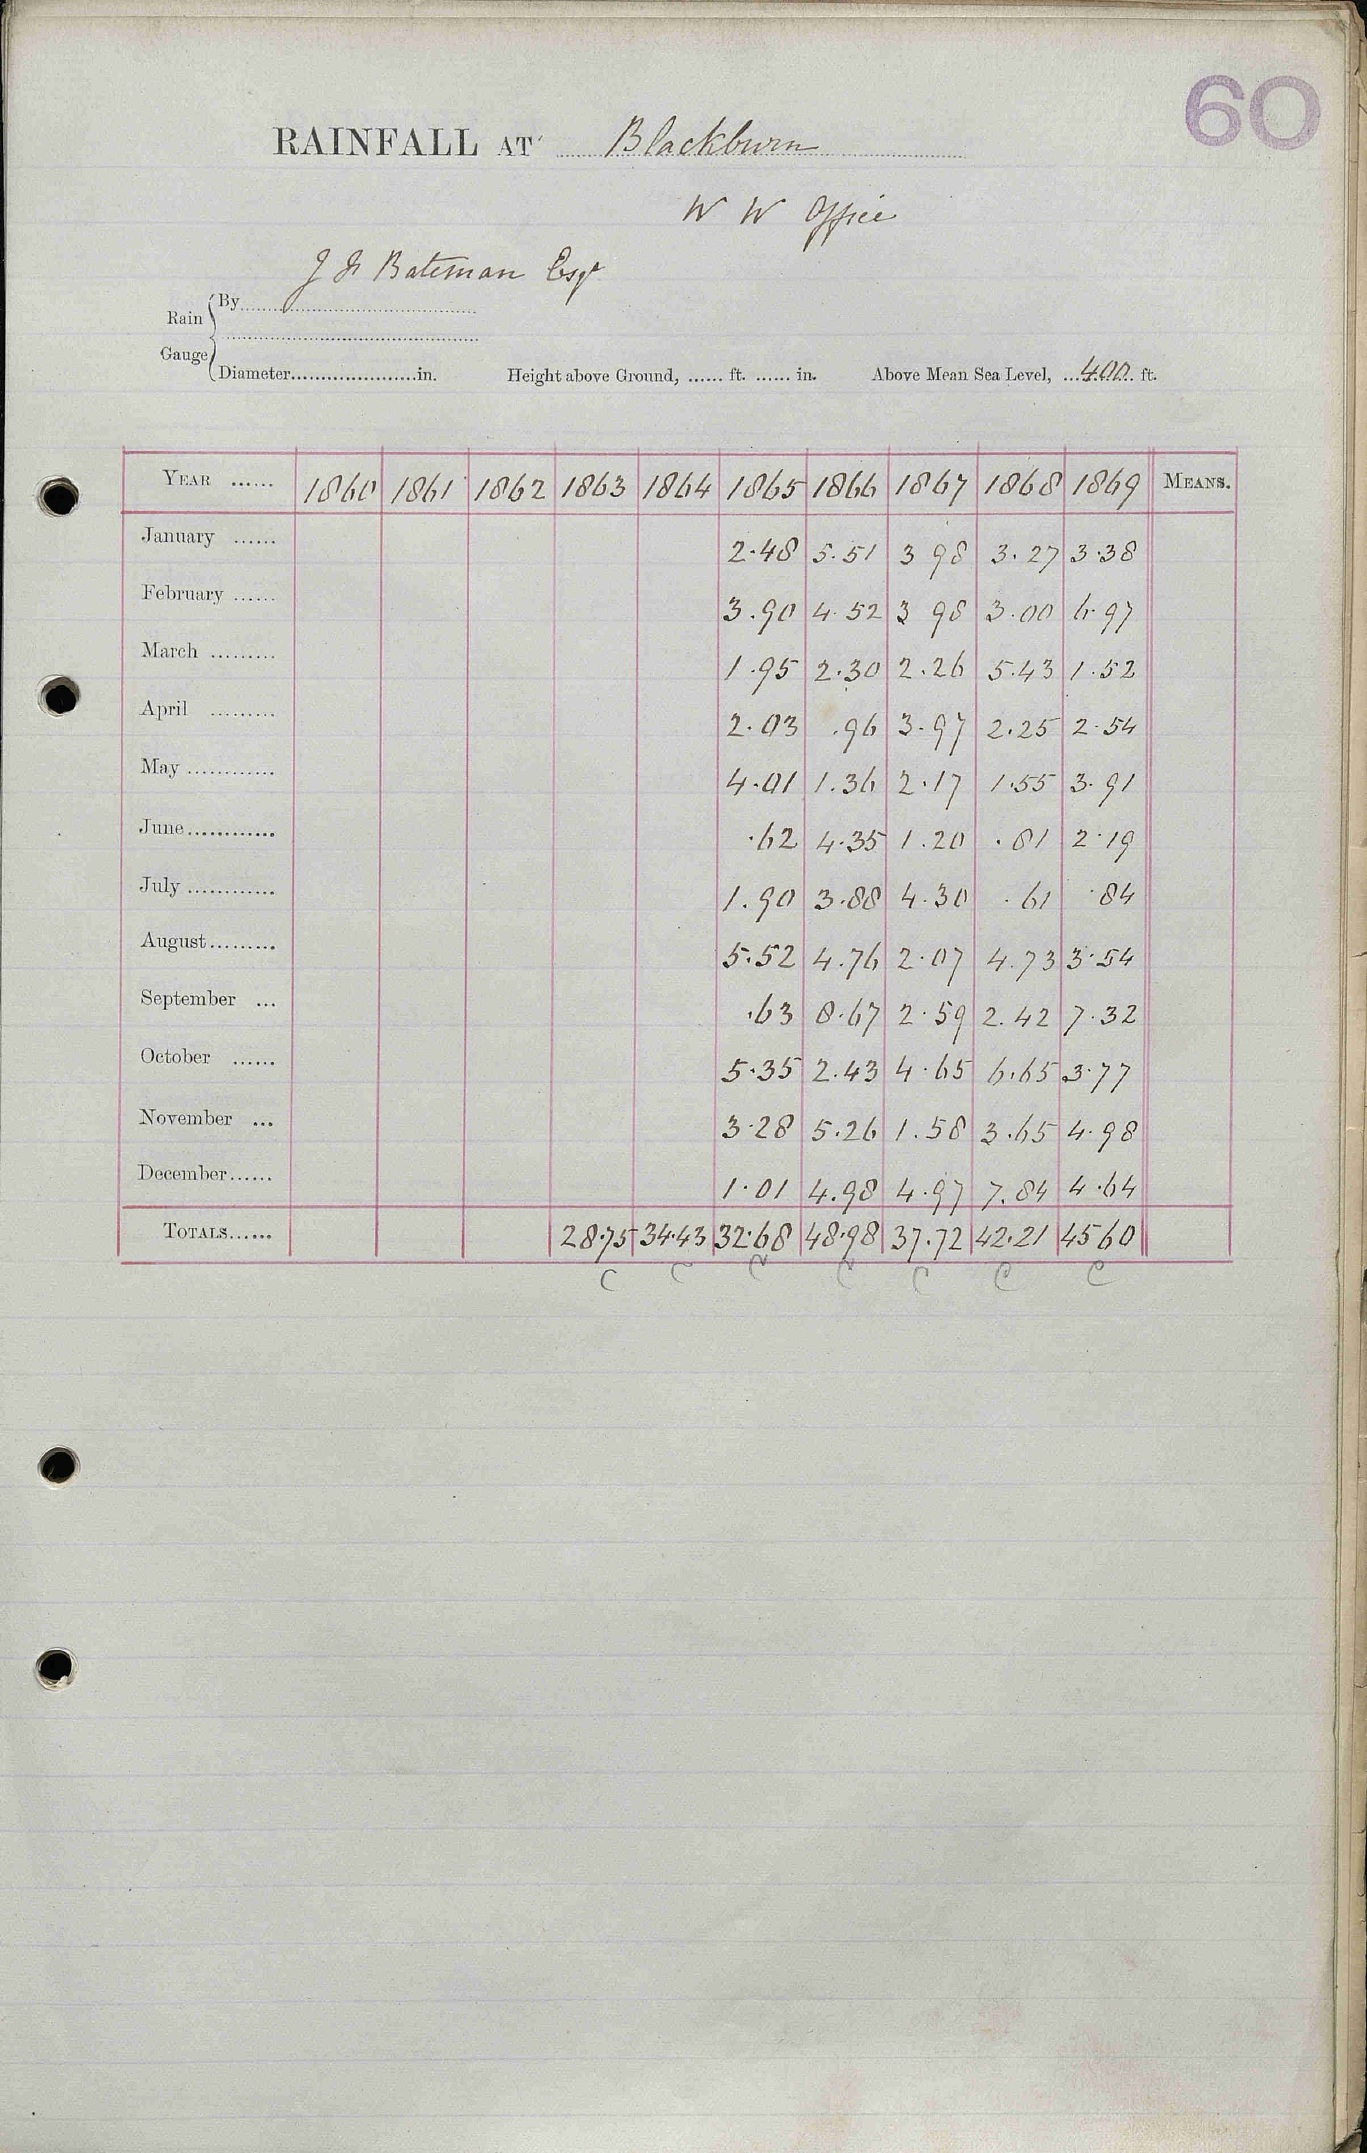 60
RAINFALL AT Blackburn
W W Office
J F Bateman Esqr
Rain Gauge
By
Diameter....................in. Height above Ground, ...... ft. ...... in. Above Mean Sea Level, ...400... ft.
YEAR ...... 1860 1861 1862 1863 1864 1865 1866 1867 1868 1869 MEANS.
January ...... 2.48 5.51 3 98 3.27 3.38
February ...... 3.90 4.52 3 98 3.00 6.97
March ......... 1.95 2.30 2.26 5.43 1.52
April ......... 2.03 .96 3.97 2.25 2.54
May ............ 4.01 1.36 2.17 1.55 3.91
June............ .62 4.35 1.20 .81 2.19
July ............ 1.90 3.88 4.30 .61 .84
August......... 5.52 4.76 2.07 4.73 3.54
September ... .63 8.67 2.59 2.42 7.32
October ...... 5.35 2.43 4.65 6.65 3.77
November ... 3.28 5.26 1.58 3.65 4.98
December...... 1.01 4.98 4.97 7.84 4.64
TOTALS...... 28.75 34.43 32.68 48.98 37.72 42.21 45 60
C C C C C C C